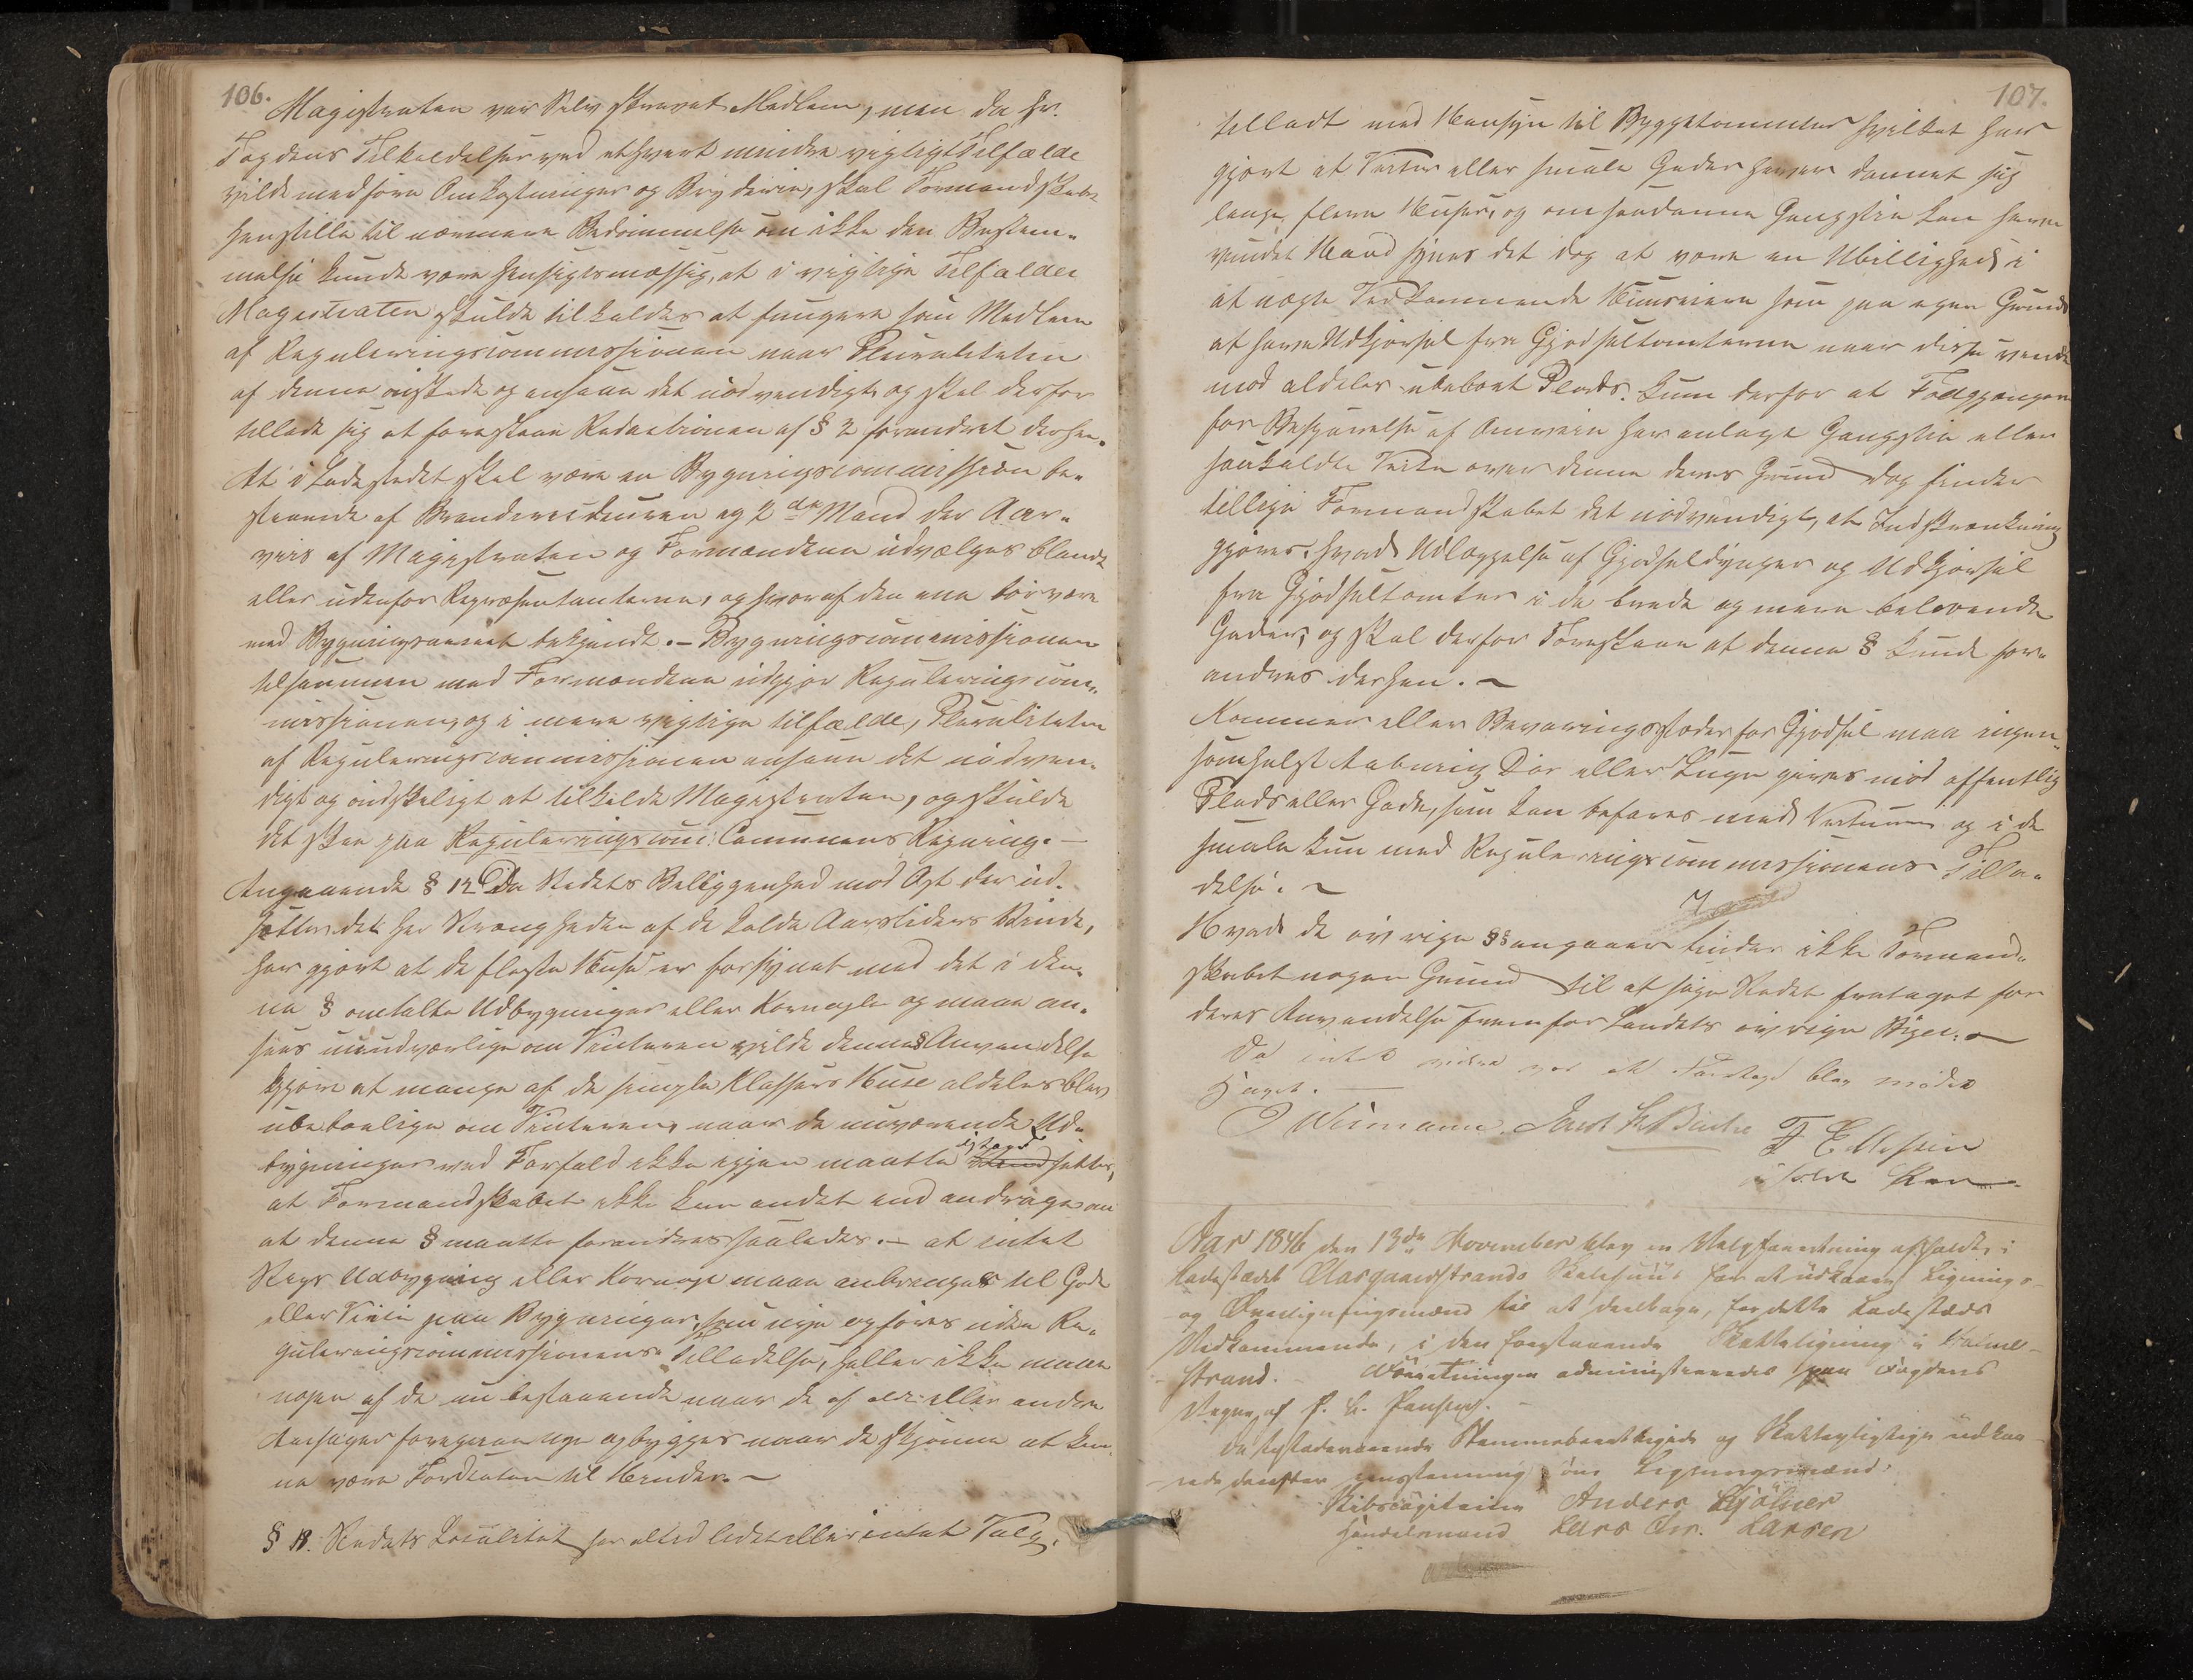 106.
Magistraten var Selv skrevet Medlem, men da Hr.
Fogdens Tilkaldelser ved ethvert mindre vigtigt Tilfælde
vilde medføre Omkostninger og Bryderie, skal Formandskabet
henstille til nærmere Bedømmelse om ikke den Bestem-
melse kunde være hensigtsmæssig, at i vigtige Tilfælder
Magistraten skulde tilkaldes at fungere som Medlem
af Reguleringscommissionen naar Pluraliteten
af denne ønskede og ansaae det nødvendigt og skal derfor
tillade sig at foreslaae Redactionen af § 2 forandret derhen.
At i Ladestedet skal være en Bygningscommission be-
staaende af Branddirecteuren og 2de Mænd der Aar-
viis af Magistraten og Formændene udvælges blandt
eller udenfor Repræsentanterne, og hvoraf den ene bør være
med Bygningsvæsenet bekjendt. – Bygningscommissionen
tilsammen med Formændene udgjør Reguleringscom-
missionen, og i mere vigtige tilfælde, Pluraliteten
af Reguleringscommissionen ansaae det nødven-
digt og ønskeligt at tilkalde Magistraten, og skulde
det skee paa Reguleringscom: Communens Regning. –
Angaaende § 12 Da Stedets Beliggenhed mod Øst der ud-
sætter det for Strengheden af de kolde Aarstiders Vinde,
har gjort at de fleste Huse er forsynet med det i den-
ne § omtalte Udbygninger eller Kornasje og maae an-
sees uundværlige om Vinteren vilde denne § Anvendelse
gjøre at mange af de simple Klassers Huse aldeles blev
ubeboelige om Vinteren, naar de nuværende Ud-
bygninger ved Forfald ikke igjen maatte istand sættes,
at Formandskabet ikke kan andet end andrage om
at denne § maatte forandres saaledes. – at intet
Slags Udbygning eller Kornasje maae anbringes til Gade
eller Veie paa Bygninger, som nye opføres uden Re-
guleringscommissionens Tilladelse, heller ikke maae
nogen af de nu bestaaende naar de af Ælde eller andre
Aarsager foregaae nye opbygges naar de skjønne at kun-
ne være Fordelen til Hinder. –
§ 18. Stedets Localitet har altid lidet eller intet Valg
107.
tilladt med Hensyn til Byggetomter hvilket har
gjort at Veiter eller smale Gader haver dannet sig
langs flere Huser, og omsaadanne Gangstie kan have
vundet Hævd synes det dog at være en Ubillighed i
at nægte Vedkommende Huuseiere som paa egen Grund
at have Udkjørsel fra Gjødseltomterne naar disse vende
mod aldeles ubeboet Plads. Kun derfor at Fodgjængere
for Besparelse af Omveie har anlagt Gangstie eller
saakaldte Veite over denne deres Grund dog finder
tillige Formandskabet det nødvendigt, at Indskrænkning
gjøres, hvad Udlæggelse af Gjødseldynger og Udkjørsel
fra Gjødseltomter i de brede og mere belevende
Gader, og skal derfor Foreslaae at denne § kunde for-
andres derhen. –
Kammer eller Bevaringssteder for Gjødsel maa ingen-
somhelst Aabning Dør eller Luge gives mod offentlig
Plads eller Gade, som kan befares med Vertuur og i de
smale kun med Reguleringscommissionens Tilla-
delse. –
Hvad de øvrige §§ angaaer finder ikke Formand-
skabet nogen Grund til at søge Stedet fritaget for
deres Anvendelse fremfor Landets øvrige Byer. –
Da intet videre var at Foretage blev mødet
hævet. –
F Ellefsen
Aar 1846 den 13de November blev en Valgforretning afholdt i
Ladestædet Aasgaardstrands Skolehuus for at udkaare Lignings-
og Overligningsmænd til at deeltage, for dette Ladestæds
Vedkommende, i den forestaaende Skatteligning i Holme-
strand. Forretningen administreredes paa Fogdens
Vegne af
De tilstædeværende Stemmeberettigede og Skattepligtige udkaa-
rede derefter eenstemmig som Ligningsmænd:
Skibscapitain Anders Kjølner
Handelsmand Lars Chr. Larsen